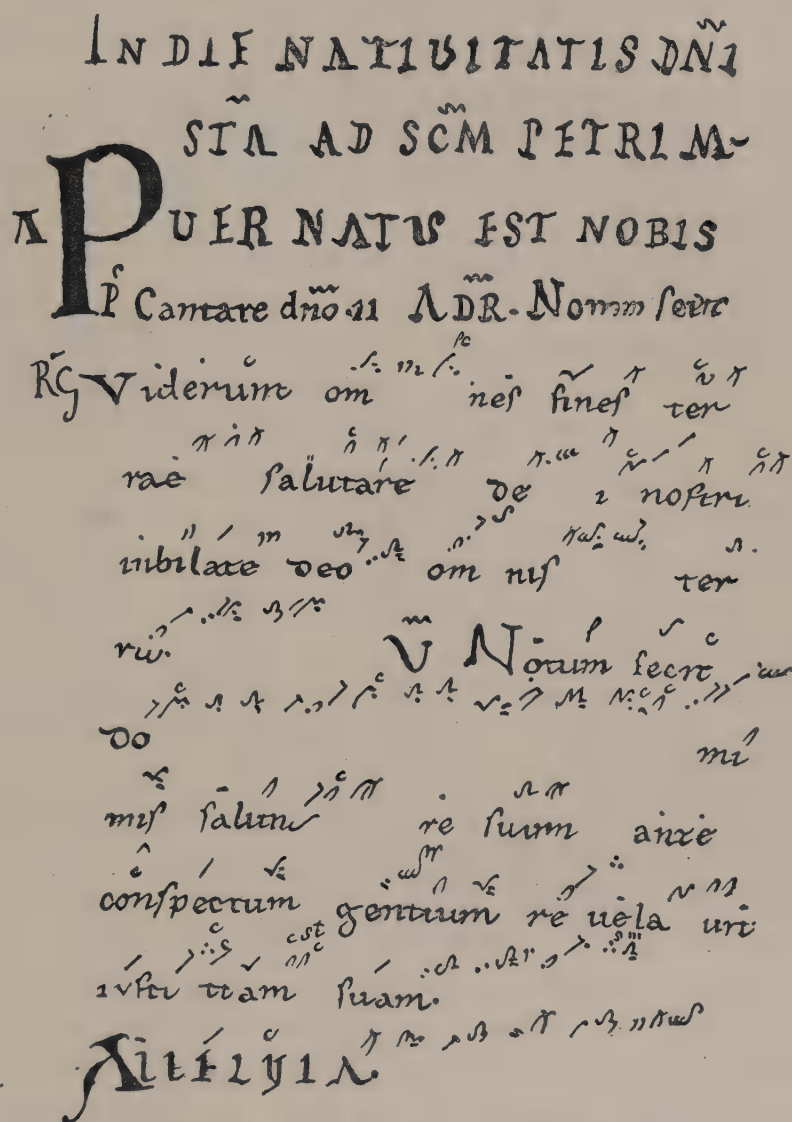 IN DIE NATIUITATIS DNI
STA AD SCM PETRUM
A PUER NATUS EST NOBIS
P Cantare dno .II ADR. Notum fecit
RG Viderunt om nes fines ter
rae salutare de i nostri
iubilate deo om nis ter
ra. V Notum fecit
do mi
nus saluta re suum ante
conspectum gentium re uela uit
iusti tiam suam.
Alleluia.